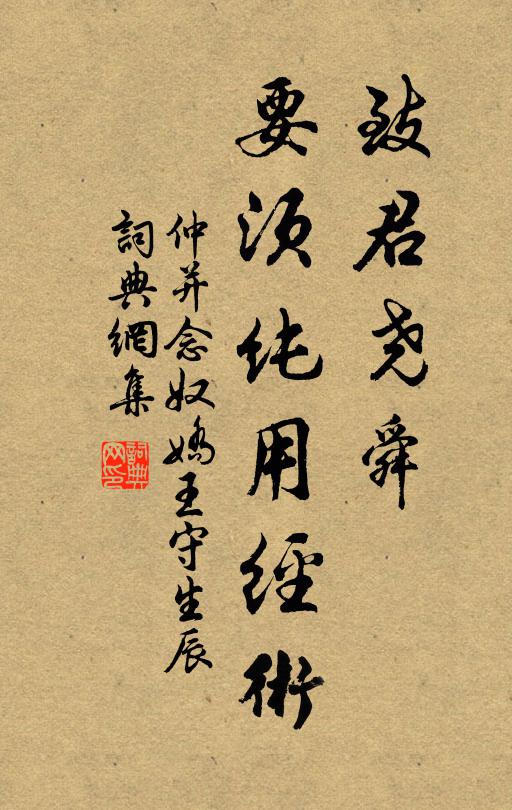 致君尧舜
要须纯用經術
仲并念奴嬌王守生辰
詞典網集
詞典
网印